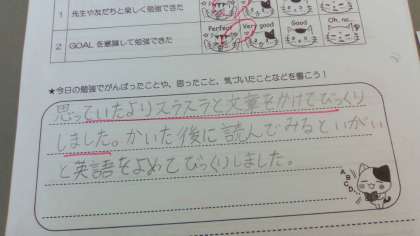 1 先生や友だちと楽しく勉強できた
Perfect Very good Good Oh, no...
2 GOALを意識して勉強できた
★今日の勉強でがんばったことや、思ったこと、気づいたことなどを書こう!
思っていたよりスラスラと文章をかけてびっくり
しました。かいた後に読んでみるといがい
と英語をよめてびっくりしました。
A
B
C
D